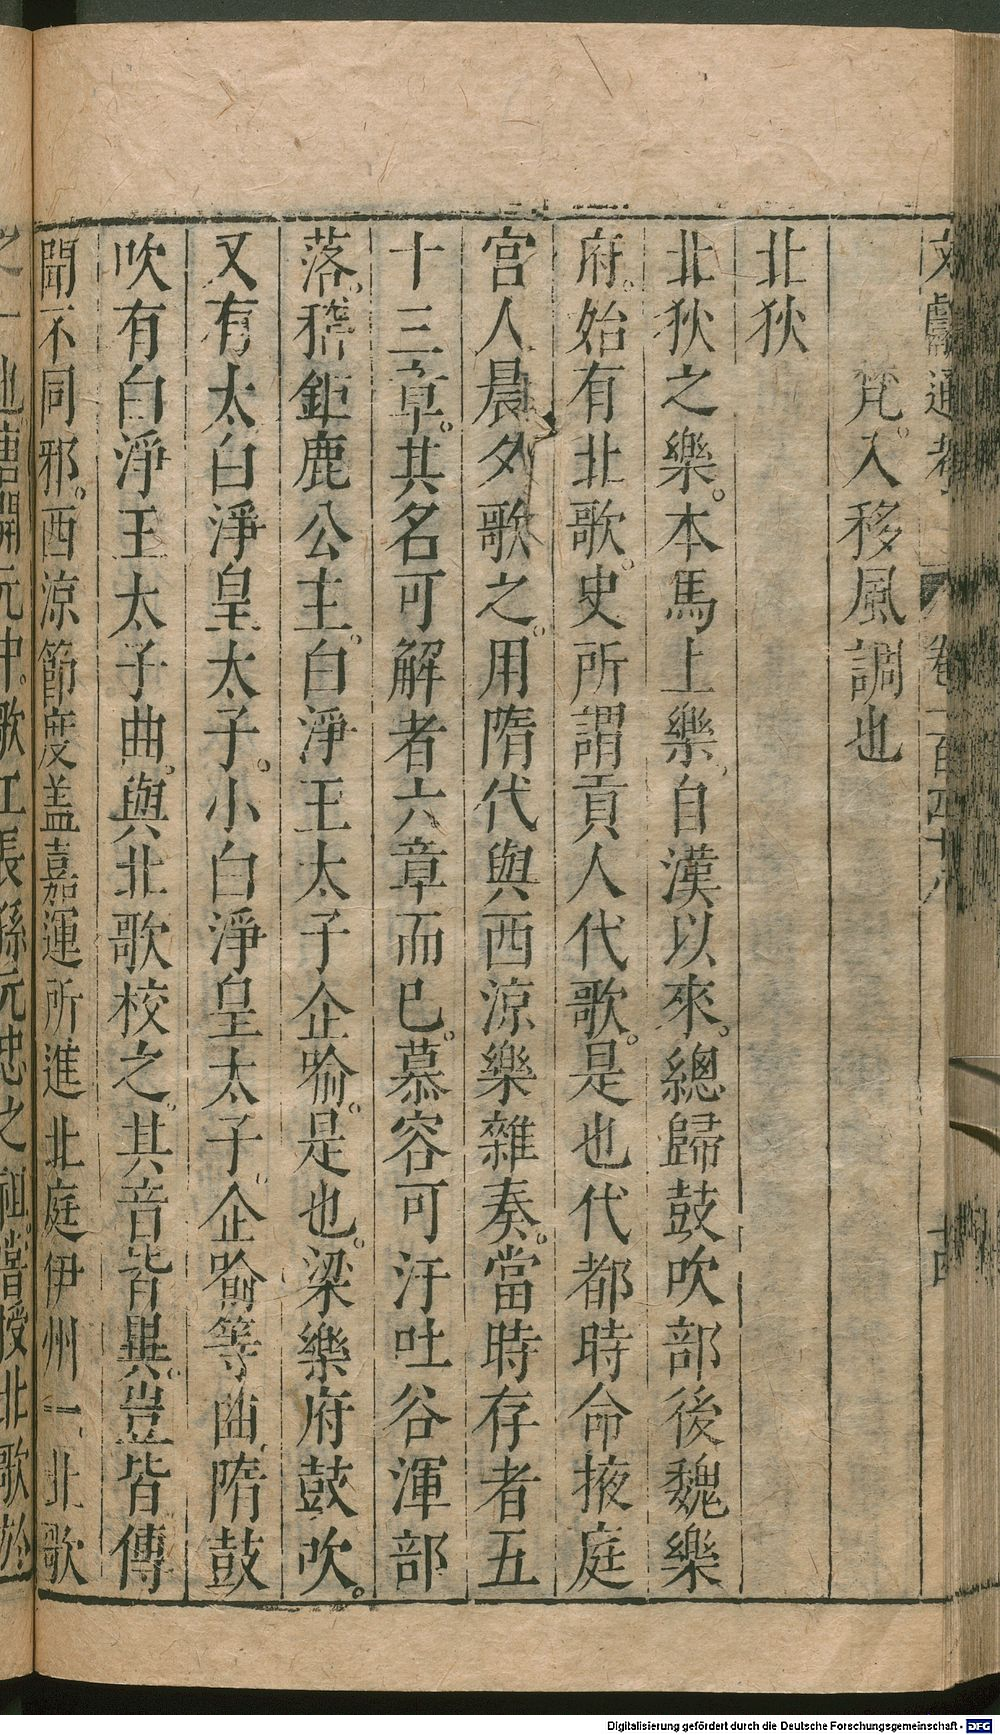 文獻通考 卷一百四十八
梵入移風調也
北狄
北狄之樂。本馬上樂。自漢以來。總歸鼓吹部後魏樂
府。始有北歌。史所謂貢人代歌。是也代都時命掖庭
宮人晨夕歌之。用隋代與西涼樂雜奏。當時存者五
十三章。其名可解者六章而已。慕容可汗吐谷渾部
落。稽鉅鹿公主。白淨王太子企喻。是也。梁樂府鼓吹。
又有太白淨皇太子。小白淨皇太子。企喻等曲。隋鼓
吹有白淨王太子曲。與北歌校之。其音皆異。豈皆傳
聞不同邪。西涼節度蓋嘉運所進北庭伊州一、北歌
之一也唐開元中。歌工長孫元忠之祖。嘗授北歌於
Digitalisierung gefördert durch die Deutsche Forschungsgemeinschaft - DFG